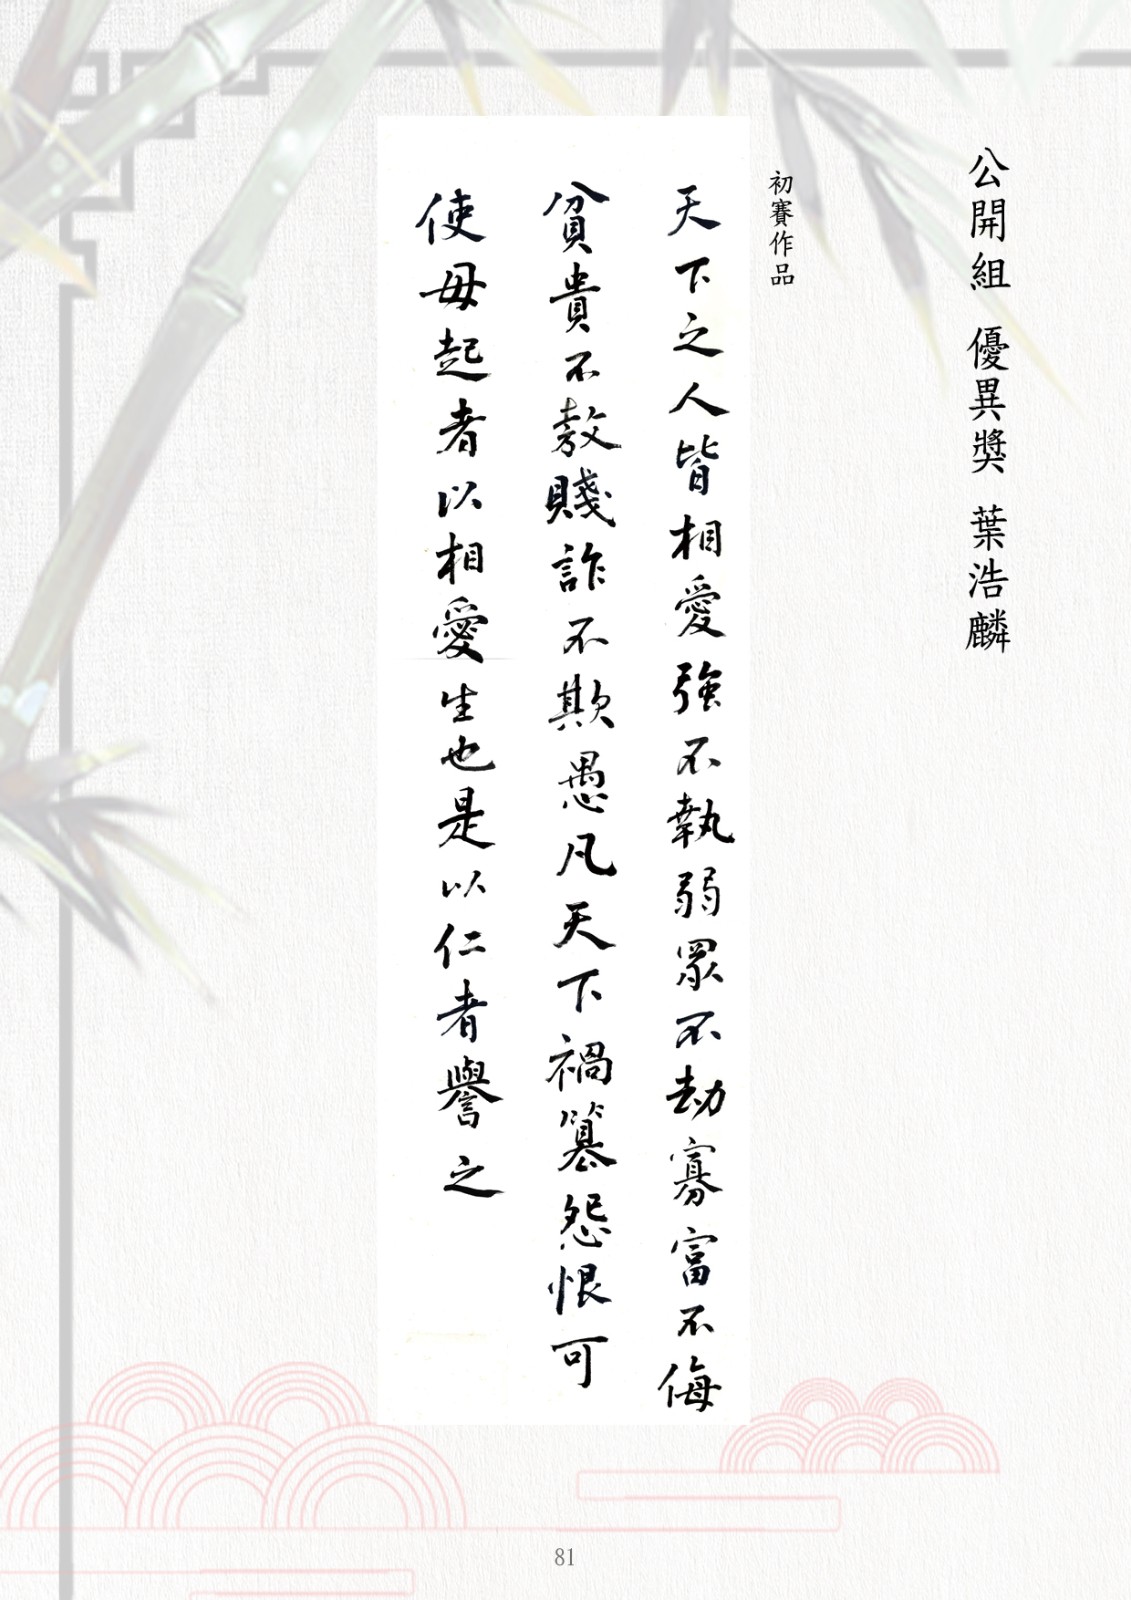 公開組 優異獎 葉浩麟
初賽作品
天下之人皆相愛強不執弱眾不劫寡富不侮
貧貴不敖賤詐不欺愚凡天下禍篡怨恨可
使毋起者以相愛生也是以仁者譽之
81